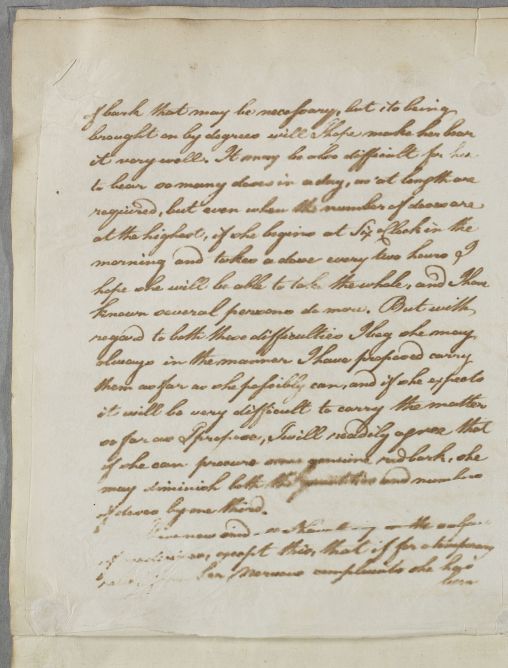 of bark that may be necessary, but its being
brought on by degrees will I hope make her bear
it very well. It may be also difficult for her
to bear so many doses in a day, as at length are
required, but even when the number of doses are
at the highest, if she begins at Six o'Clock in the
morning and takes a dose every two hours I
hope she will be able to take the whole, and I have
known several persons do more. But with
regard to both these difficulties I beg she may
always in the manner I have proposed carry
them as far as she possibly can, and if she expects
it will be very difficult to carry the matter
so far as I propose, I will readily agree that
if she can procure some genuine red bark, she
may diminish both the quantities and numbers
of doses by one third.
the
except this, that if for a temporary
her nervous complaints she has
been